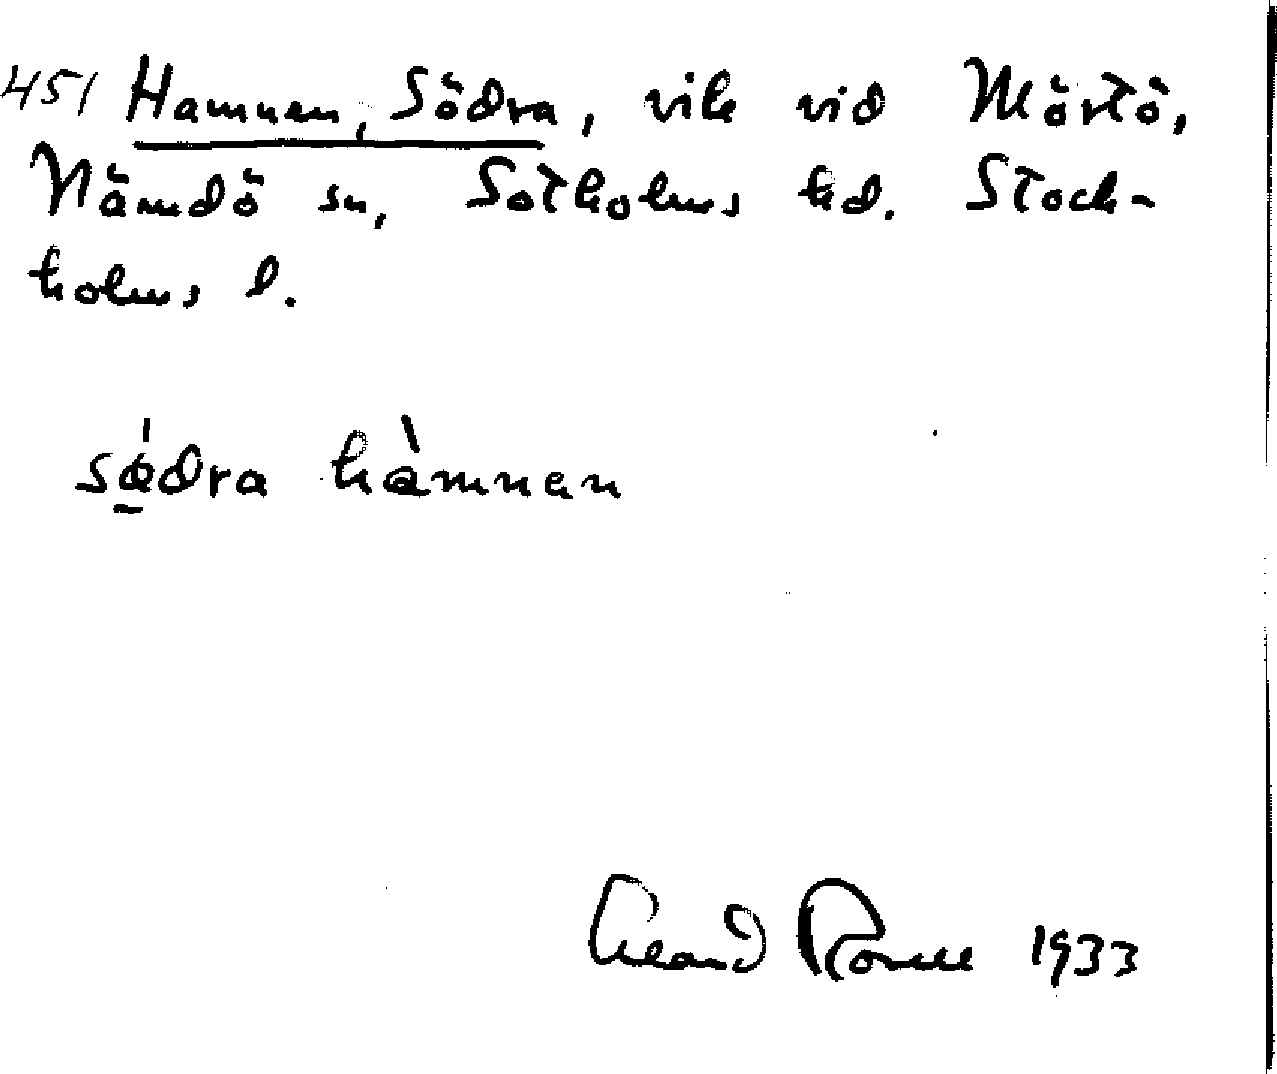 451 Hamnen, Södra, vik vid Mörtö,
Nämdö sn, Sotholms hd. Stock-
holms l.
södra hàmnen
1933